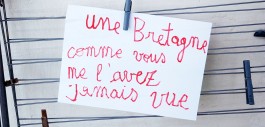 une Bretagne
comme vous
me l'avez
jamais vue